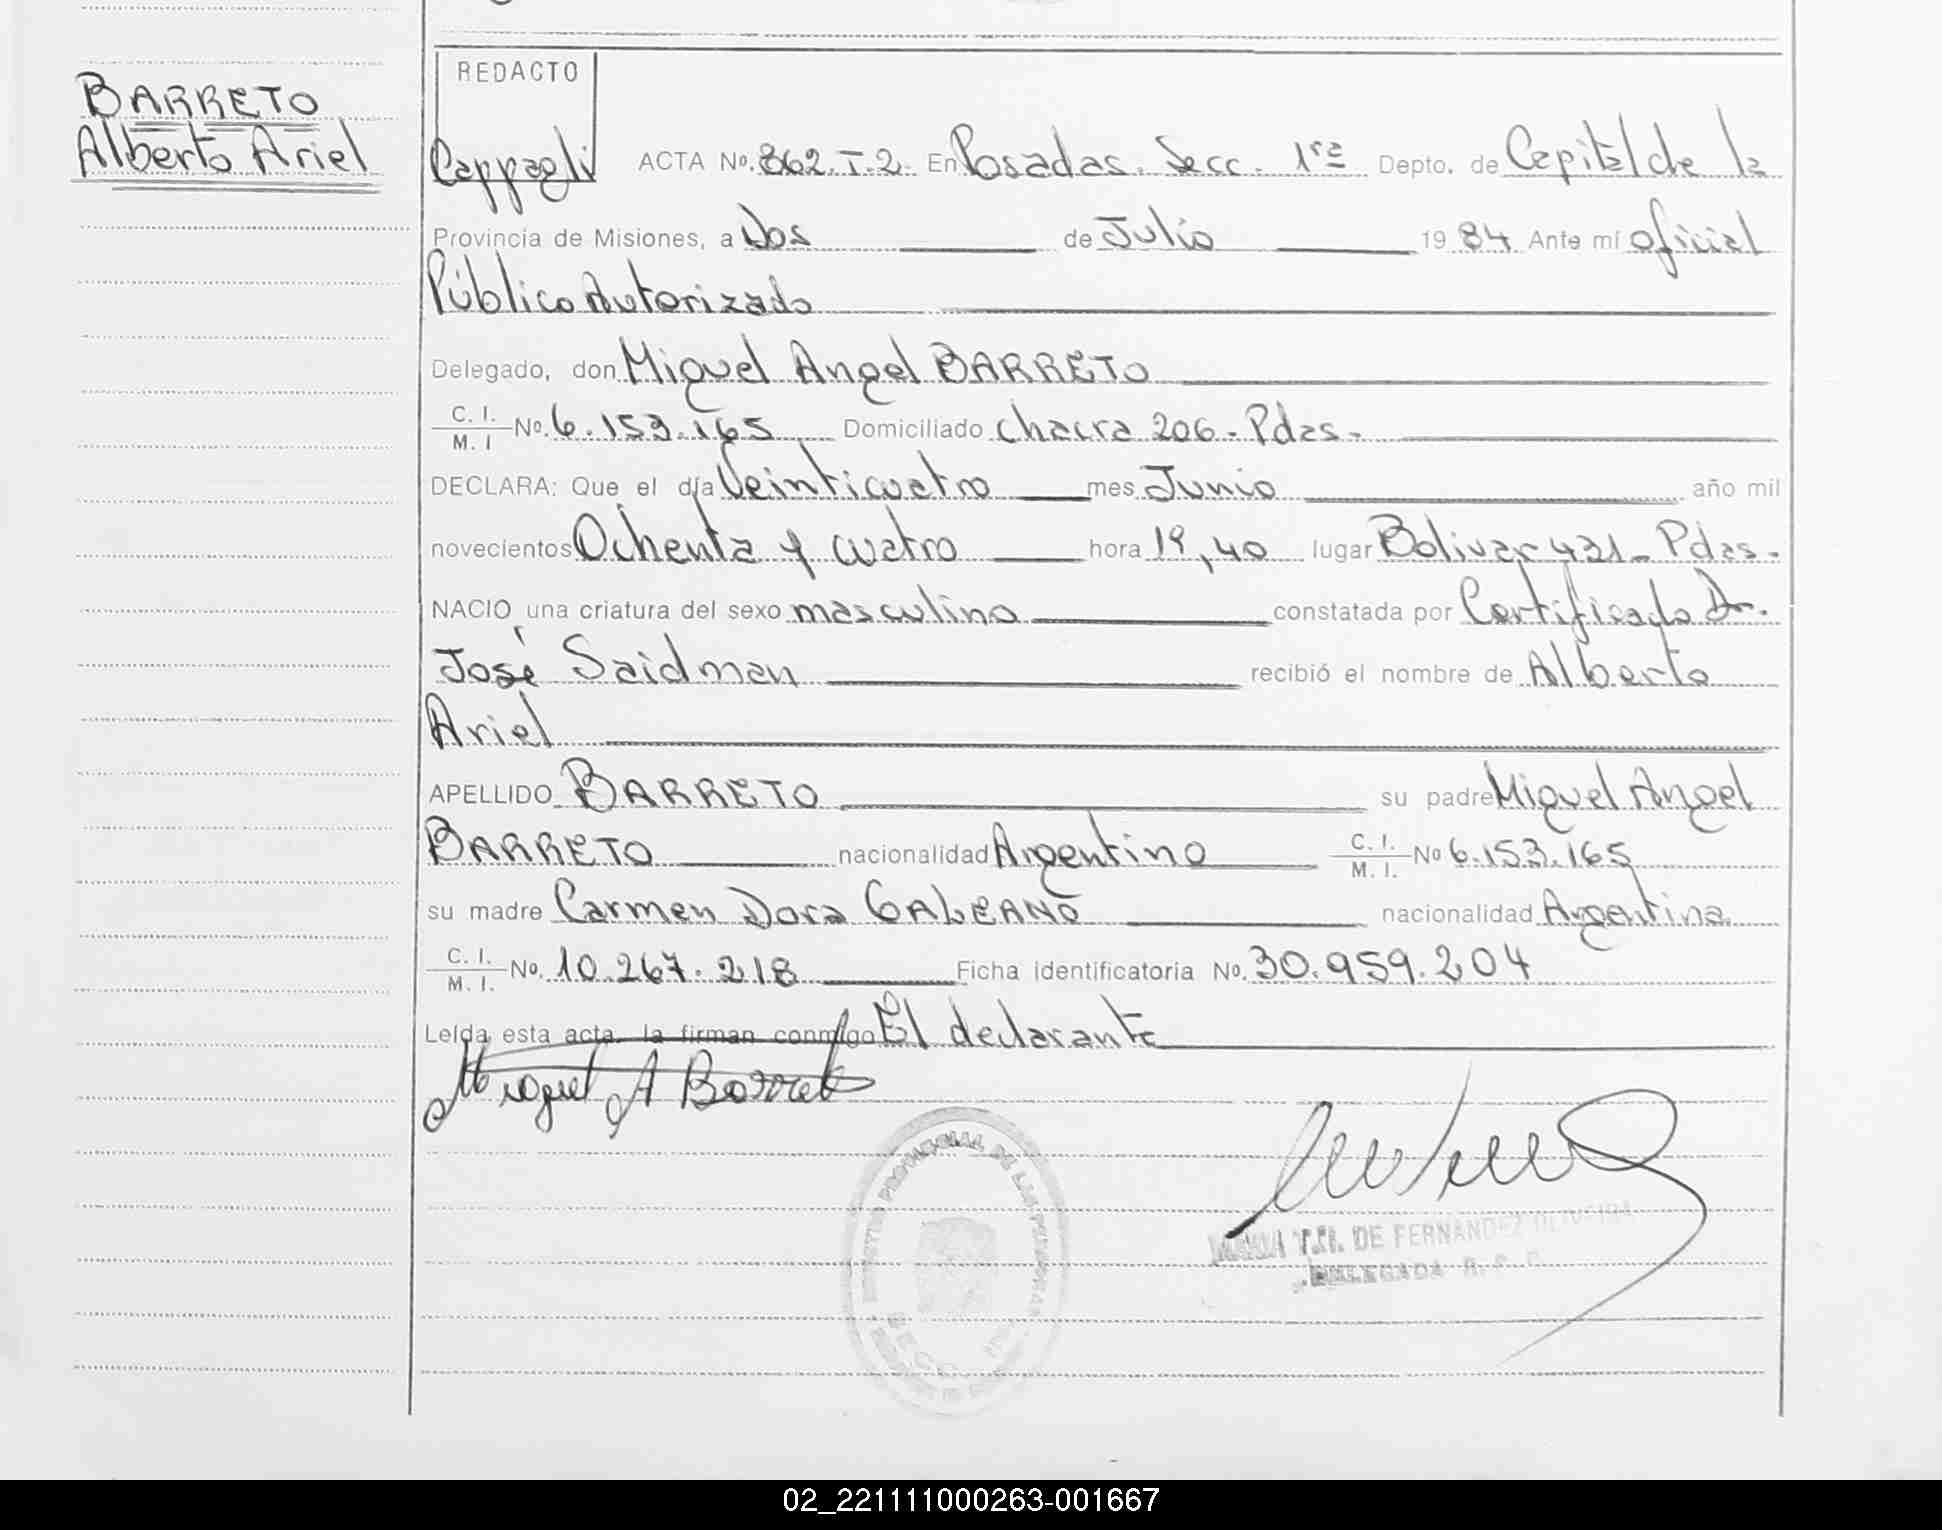 BARRETO
Alberto Ariel
REDACTO
Cappagli ACTA No. 862. T. 2. En Posadas. Secc. 1ra Depto. de Capital de la
Provincia de Misiones, a Dos de Julio 19 84 Ante mí oficial
Público Autorizado
Delegado, don Miguel Angel BARRETO
C. I. M. I No. 6.153.165 Domiciliado chacra 206 - Pdas.
DECLARA: Que el día Veinticuatro mes Junio año mil
novecientos Ochenta y cuatro hora 19,40 lugar Bolivar 421 - Pdas.
NACIO una criatura del sexo masculino constatada por Certificado Dr.
José Saidman recibió el nombre de Alberto
Ariel
APELLIDO BARRETO su padre Miguel Angel
BARRETO nacionalidad Argentino C. I. M. I. No 6.153.165
su madre Carmen Dora GALEANO nacionalidad Argentina
C. I. M. I. No. 10.267.218 Ficha identificatoria No. 30.959.204
Leída esta acta, la firman conmigo El declarante
Miguel A Barreto
DE FERNANDEZ OLIVEIRA
DELEGADA R. P.
02_221111000263-001667